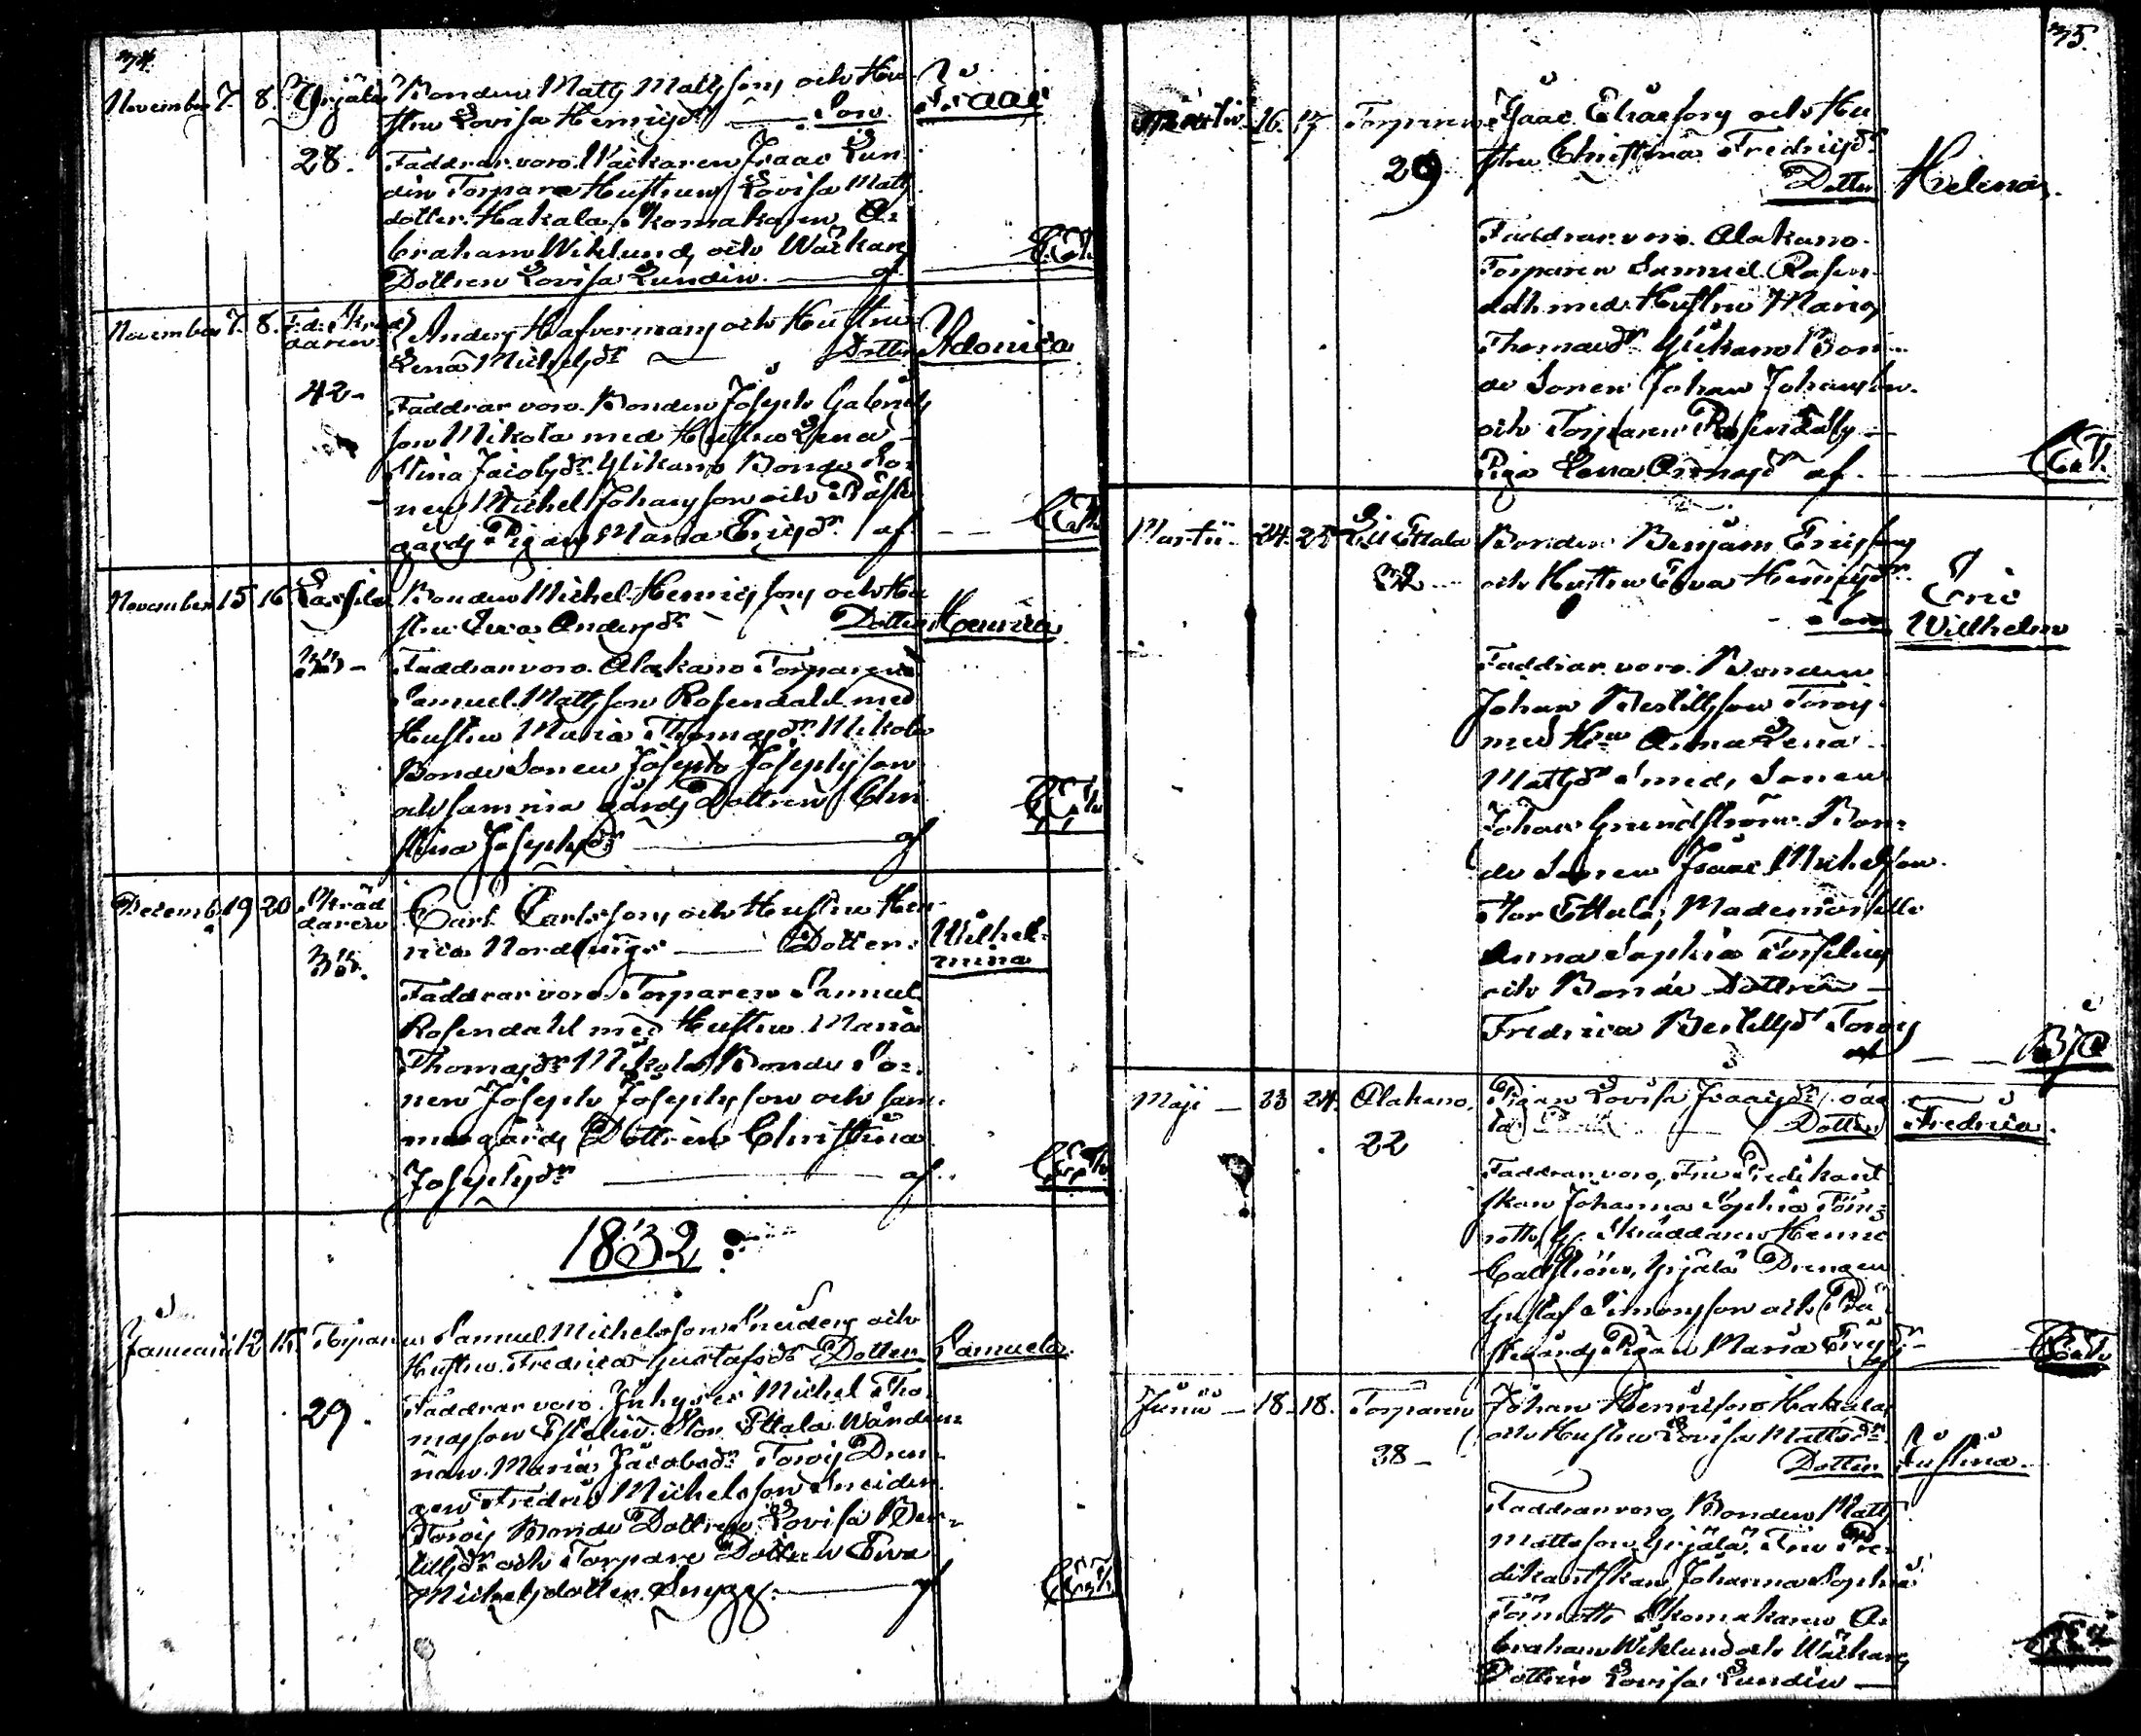 74.
November 7. 8. Yrjälä Bonden Matts Mattsson och Hu
stru Lovisa Henricsdr Son Isaac
28. Faddrar voro. Wäckaren Isaac Lun
din Torpare Hustrun Lovisa Matts
dotter Hakala, skomakaren A=
braham Wiklund, och Wäckare
Dottren Lovisa Lundin. af
November 7. 8. F.d. Skräd
daren Anders Hafverman och Hustru
Lena Michelsdr Dotter Adonica
42. Faddrar voro. Bonden Joseph Gabriels
son Mikola med Hustru Lena
Stina Jacobsdr. Ylikano Bonde So
nen Michel Johansson och Präste
gårds Pigan Maria Ericsdr. af.
November 15 16 Lassila Bonden Michel Henricsson och Hu
stru Eva Andersdr Dotter Henrica
33 Faddrar voro. Alakano Torparen
Samuel Mattsson Rosendahl med
Hustru Maria Thomasdr. Mikola
Bonde Sonen Joseph Josephsson
och samma gårds Dottren Chri
stina Josephsdr af
Decemb. 19 20 Skräd
daren Carl Carlsson och Hustru Hen
rica Nordling Dotter. Wilhel=
mina
35. Faddrar voro. Torparen Samuel
Rosendahl med Hustru Maria
Thomasdr. Mikola Bonde So=
nen Joseph Josephsson och sam
ma gårds Dottren Christina
Josephsdr af.
1832.
Januarii 12 15. Torparen Samuel Michelsson Sneider och
Hustru Fredrica Gustafsdr Dotter Samuela.
29. Faddrar voro. Inhyses Michel Tho
masson Stor Ettala Wärdin=
nan Maria Jacobsdr Toroij Dren=
gen Fredric Michelsson Sneider
Toroij Bonde Dottren Lovisa Ber=
tillsdr och Torpare Dottren Eva
Michelsdotter Snygg. af
75.
Martii 16. 17 Torparen Isaac Eliaesson och Hu
stru Christina Fredricsdr
29 Dotter Helena.
Faddrar voro. Alakano
Torparen Samuel Rosen=
dahl med Hustru Maria
Thomasdr. Ylikano Bon=
de Sonen Johan Johansson.
och Torparen Rosendahls
Piga Lena Ersdr af.
Martii 24. 25 Lill Ettala Bonden Benjam Ericsson
32 och Hustru Eva Henricsdr.
Son Eric
Wilhelm
Faddrar voro. Bonden
Johan Bertillsson Toroij
med Hru Anna Lena
Mattsdr Smeds Sonen
Johan Grundström. Bon=
de Sonen Isaac Michelsson
Stor Ettala, Mademoiselle
Anna Sophia Forselius
och Bonde Dottren
Fredrica Bertillsdr Toroij
af
Maji 23 24. Alakano. Pigan Lovisa Isaacsdr oäc
ta Dotter Fredrica.
22
Faddrar voro, Fru Predikant
skan Johanna Sophia Törn
roth, Skräddaren Henric
Callström, Yrjälä Drengen
Gustaf Simonsson och Prä
stegårds Pigan Maria Ericsdr
af
Junii 18. 18. Torparen Johan Henricsson Hakala
och Hustru Lovisa Mattsdr
38 Dotter Justina.
Faddrar voro Bonden Matts
Mattsson Yrjälä, Fru Pre=
dikantskan Johanna Sophia
Törnroth Skomakaren A=
braham Wiklund och Wäckare
Dottren Lovisa Lundin